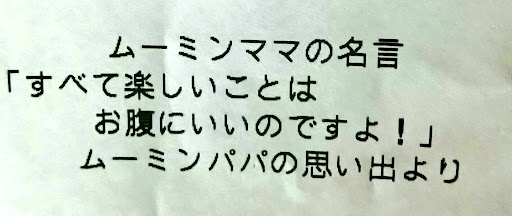 ムーミンママの名言
「すべて楽しいことは
お腹にいいのですよ!」
ムーミンパパの思い出より